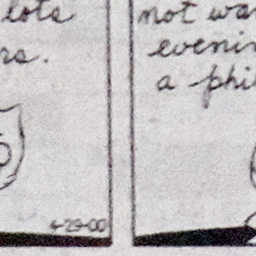 lots
rs.
6-29-00
not wa
evenin
a phi